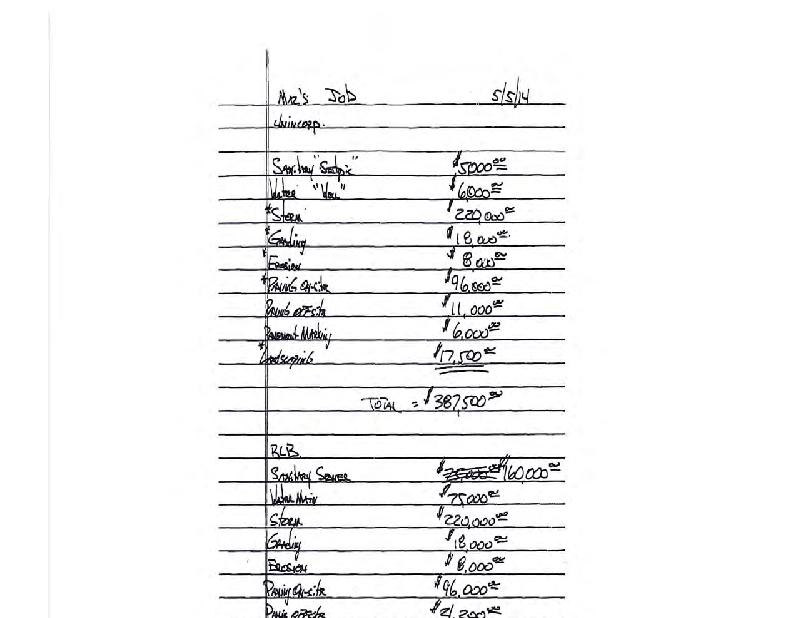 Maz's Job 5/5/14
Unincorp.
Sanitary "Septic" $5000.00
Water "Well" $6,000.00
*Storm $220,000.00
*Grading $18,000.00
*Erosion $8,000.00
*Paving On-site $96,000.00
Paving offsite $11,000.00
Pavement Marking $6,000.00
*Landscaping $17,500.00
Total = $387,500.00
RLB
Sanitary Sewer $160,000.00
Water Main $75,000.00
Storm $220,000.00
Grading $18,000.00
Erosion $8,000.00
Paving On-site $96,000.00
Paving offsite $21,200.00